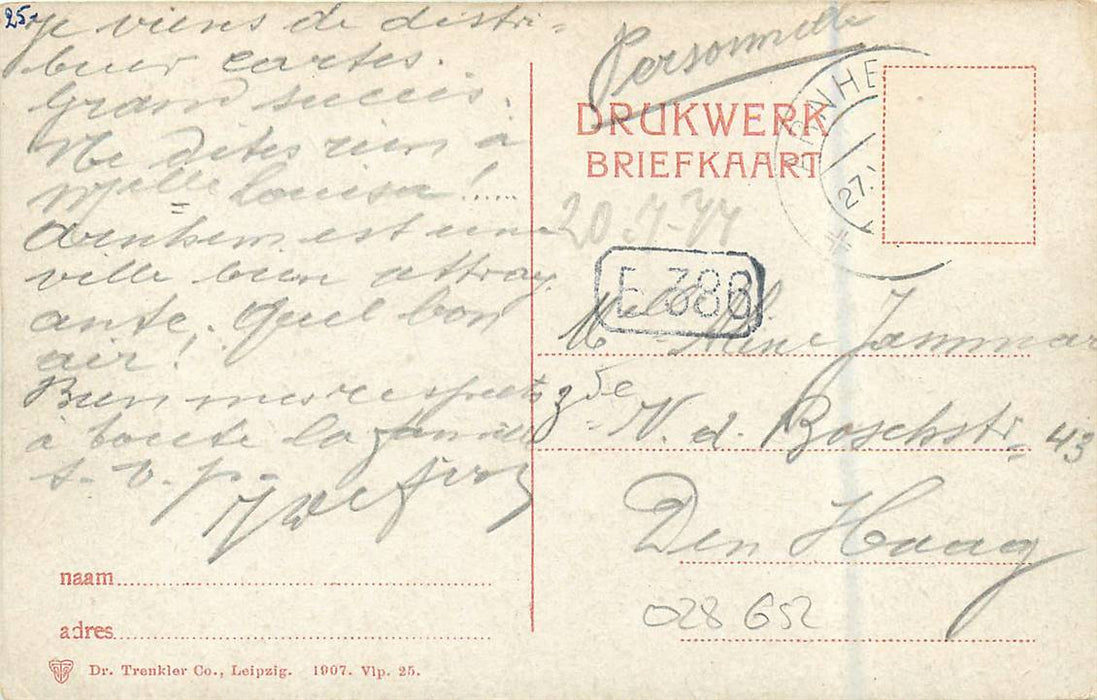 25-
Je viens de distri-
buer cartes.
Grand succès.
Ne dites rien à
Mlle Louisa!.....
Arnhem est une
ville bien attray
ante. Quel bon
air!
Bien mes respects
à toute la famille
s. v. p.
Personnelle
DRUKWERK
BRIEFKAART
ARNHE
27.
20 7-77
E 388
Melle Aline Jammar
v. d. Boschstr. 43
Den Haag
028 652
naam
adres
Dr. Trenkler Co., Leipzig. 1907. Vlp. 25.